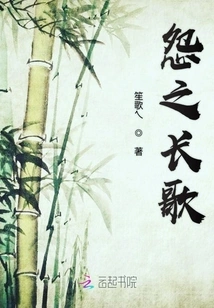 怨之长歌
笙歌乀◎著
云起书院